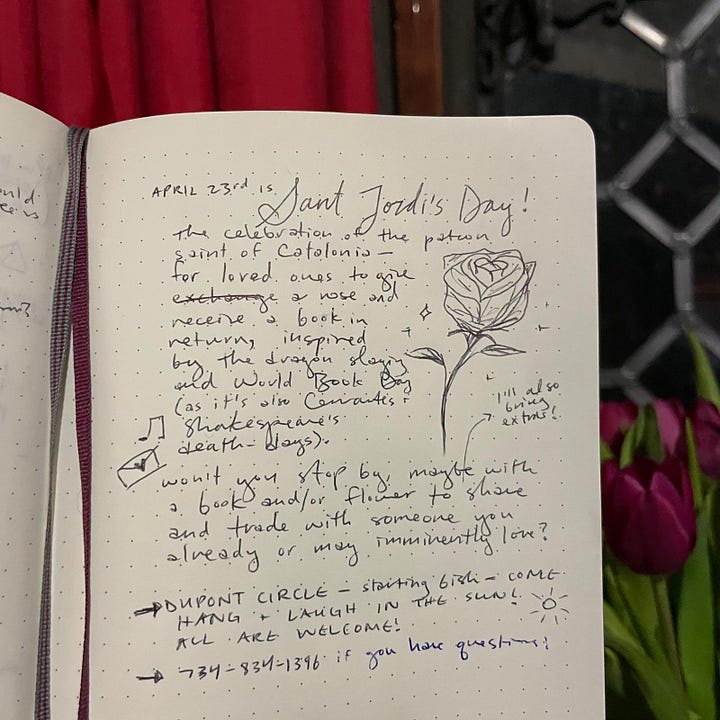 APRIL 23rd is Sant Jordi's Day!
The celebration of the patron
saint of Catalonia —
for loved ones to give
exchange a rose and
receive a book in
return, inspired
by the dragon slaying
and World Book Day
(as it's also Cervantes +
Shakespeare's
death-days).
I'll also
bring
extras!
won't you stop by, maybe with
a book and/or flower to share
and trade with someone you
already or may imminently love?
→ DUPONT CIRCLE — starting 6ish — COME
HANG + LAUGH IN THE SUN!
ALL ARE WELCOME!
→ 734-834-1396 if you have questions!